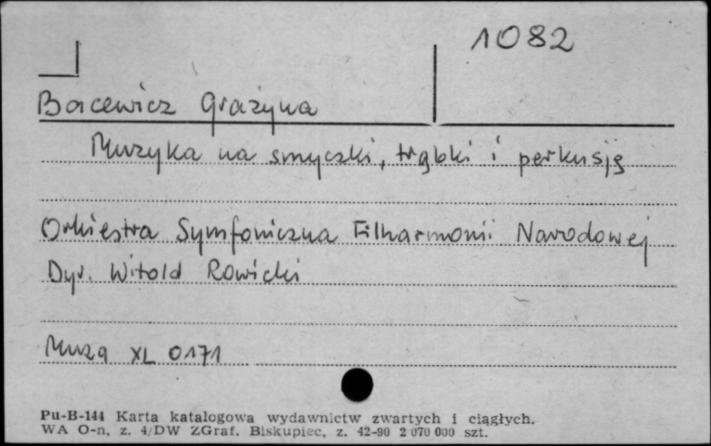 1082
Bacewicz Grażyna
Muzyka na smyczki, trąbki i perkusję
Orkiestra Symfoniczna Filharmonii Narodowej
Dyr. Witold Rowicki
Muza XL 0171
Pu-B-144 Karta katalogowa wydawnictw zwartych i ciągłych.
WA O-n, z. 4/DW ZGraf. Biskupiec, z. 42-90 2 070 000 szt.